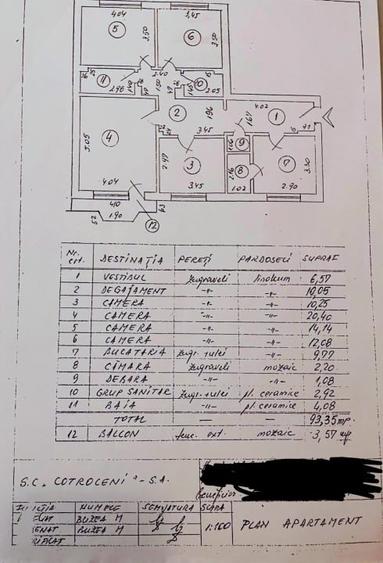 4.04
3.45
5
3.50
6
3.50
11
2.98
10
2
1.96
4.02
1
3.45
1.67
4
5.05
2.97
3
9
8
7
3.30
4.04
3.45
1.02
2.90
1.90
12
Nr. crt. DESTINAȚIA PEREȚI PARDOSELI SUPRAF
1 VESTIBUL zugraveli linoleum 6,57
2 DEGAJAMENT -"- -"- 10,05
3 CAMERA -"- -"- 10,25
4 CAMERA -"- -"- 20,40
5 CAMERA -"- -"- 14,14
6 CAMERA -"- -"- 12,08
7 BUCATARIA zugr. ulei -"- 9,77
8 CĂMARA zugraveli mozaic 2,20
9 DEBARA -"- -"- 1,08
10 GRUP SANITAR zugr. ulei pl. ceramice 2,92
11 BAIA -"- pl. ceramice 4,08
TOTAL — — 93,35 mp.
12 BALCON tenc. ext. mozaic 3,57 mp
S.C. COTROCENI - S.A.
beneficiar
NUMELE SEMNATURA SCARA
BUZEA M
BUZEA M
1:100 PLAN APARTAMENT